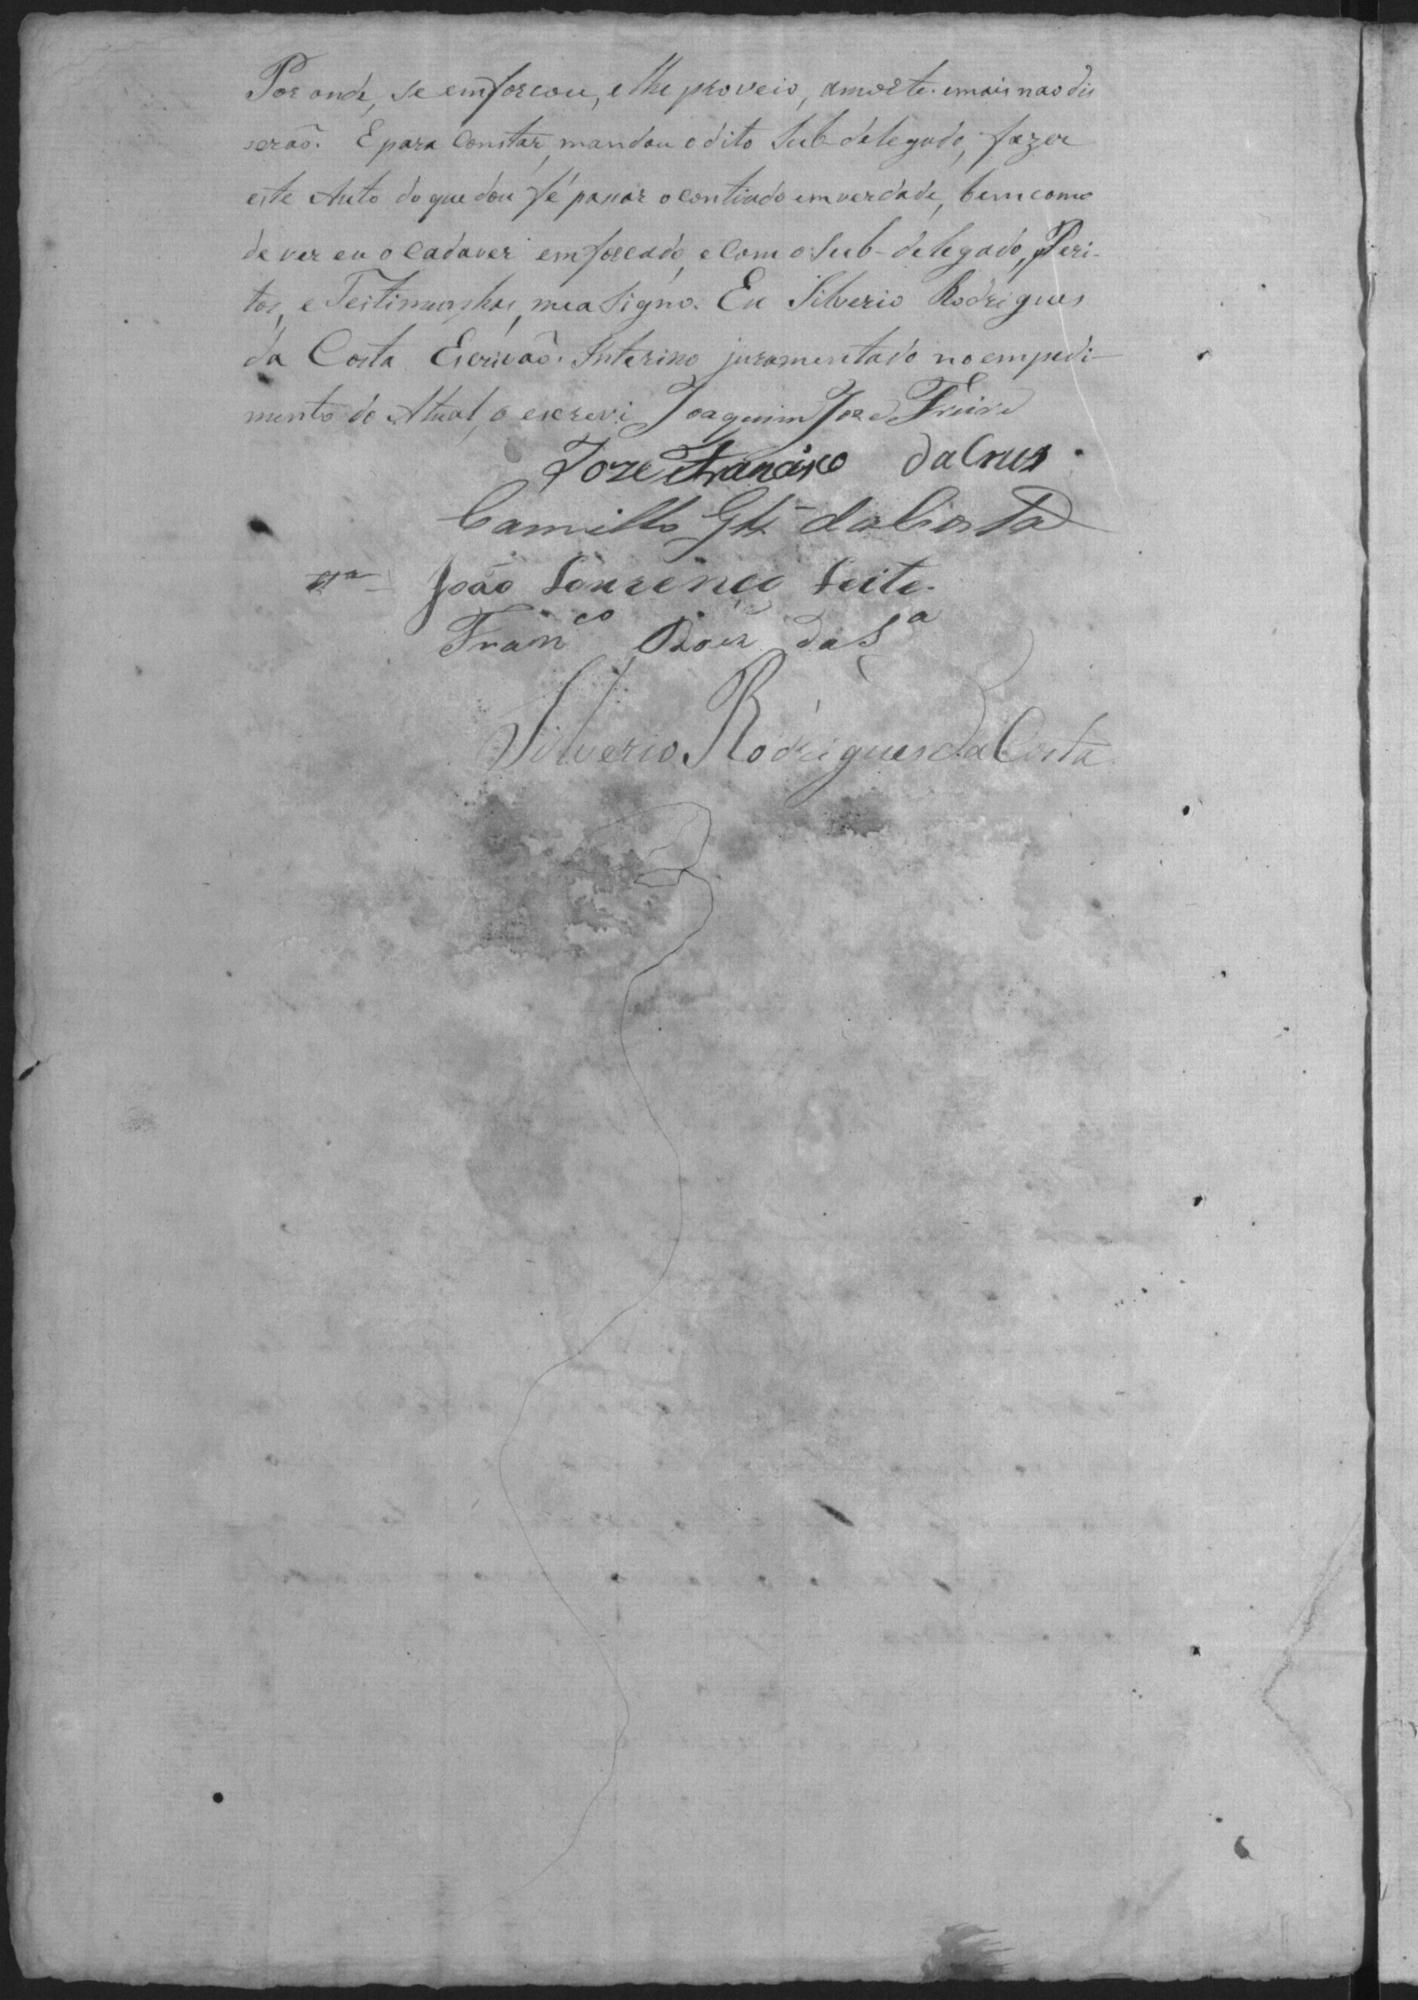 Por onde, se emforcou, e lhe proveio, amorte. emais nao dis
serão. E para Constar, mandou o dito Sub-delegado, fazer
este Auto do que dou fé passar o contiudo em verdade, bem como
de ver eu o Cadaver emforcado, e Com o Sub-delegado, Peri-
tos, e Testimunhas, me a Signo. Eu Silverio Rodrigues
da Costa Escrivaõ. Interino juramentado no empedi-
mento do Atual, o escrevi Joaquim Joze Freire
Joze Francisco da Crus
Camillo Glz da Costa
João Lourenco Leite.
Fran.co Roiz da S.a
Silverio Rodrigues da Costa